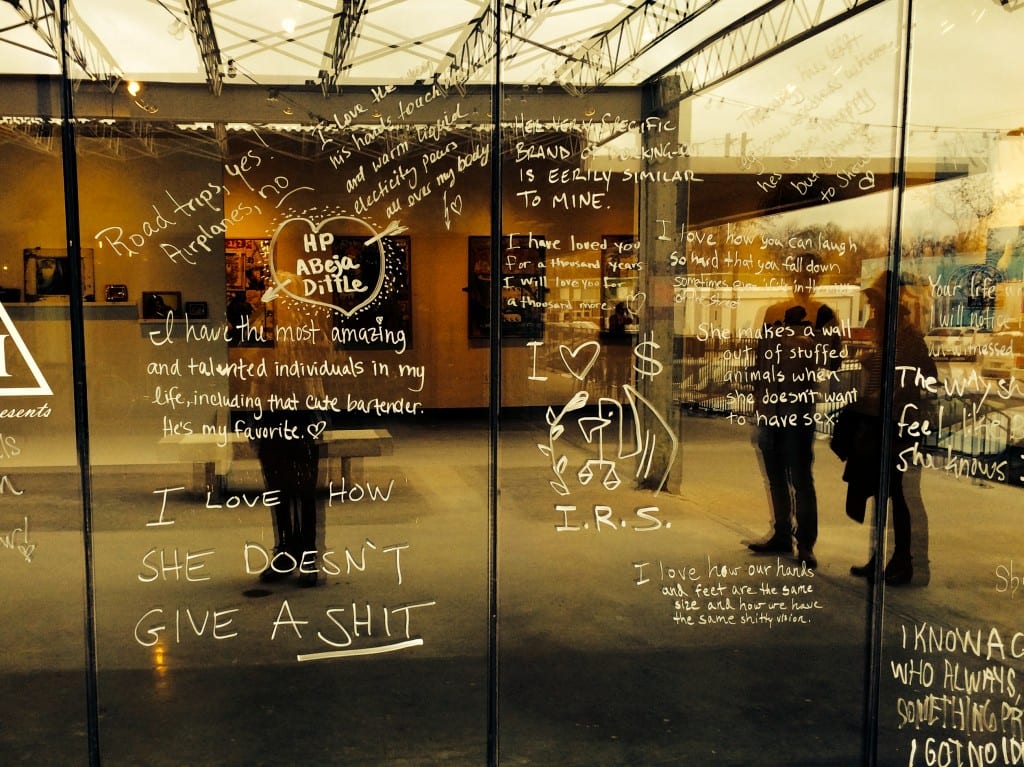 Road trips, yes!
Airplanes, no
I love the
his hands touch
and warm liquid
electicity pours
all over my body
HP
ABeja
Dittle
I have the most amazing
and talented individuals in my
life, including that cute bartender.
He's my favorite.
I LOVE HOW
SHE DOESN'T
GIVE A SHIT
esents
HER VERY SPECIFIC
BRAND OF
IS EERILY SIMILAR
TO MINE.
I have loved you
for a thousand years
I will love you for
a thousand more
I $
I.R.S.
I love how you can laugh
so hard that you fall down
sometimes even
She makes a wall
out of stuffed
animals when
she doesn't want
to have sex.
I love how our hands
and feet are the same
size and how we have
the same shitty vision.
but
to show
Your life
I will notice
un-witnessed
The way sh
feel like
she knows
Sh
I KNOW A G
WHO ALWAYS
SOMETHING PR
I GOT NO ID